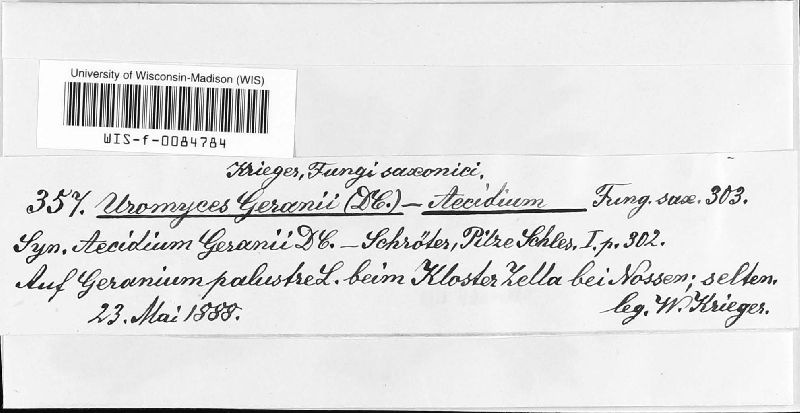 University of Wisconsin-Madison (WIS)
WIS-f-0084784
Krieger, Fungi saxonici.
357. Uromyces Geranii (DC.) — Aecidium Fung. sax. 303.
Syn. Aecidium Geranii DC. — Schröter, Pilze Schles. I. p. 302.
Auf Geranium palustre L. beim Kloster Zella bei Nossen; selten.
23. Mai 1888. leg. W. Krieger.